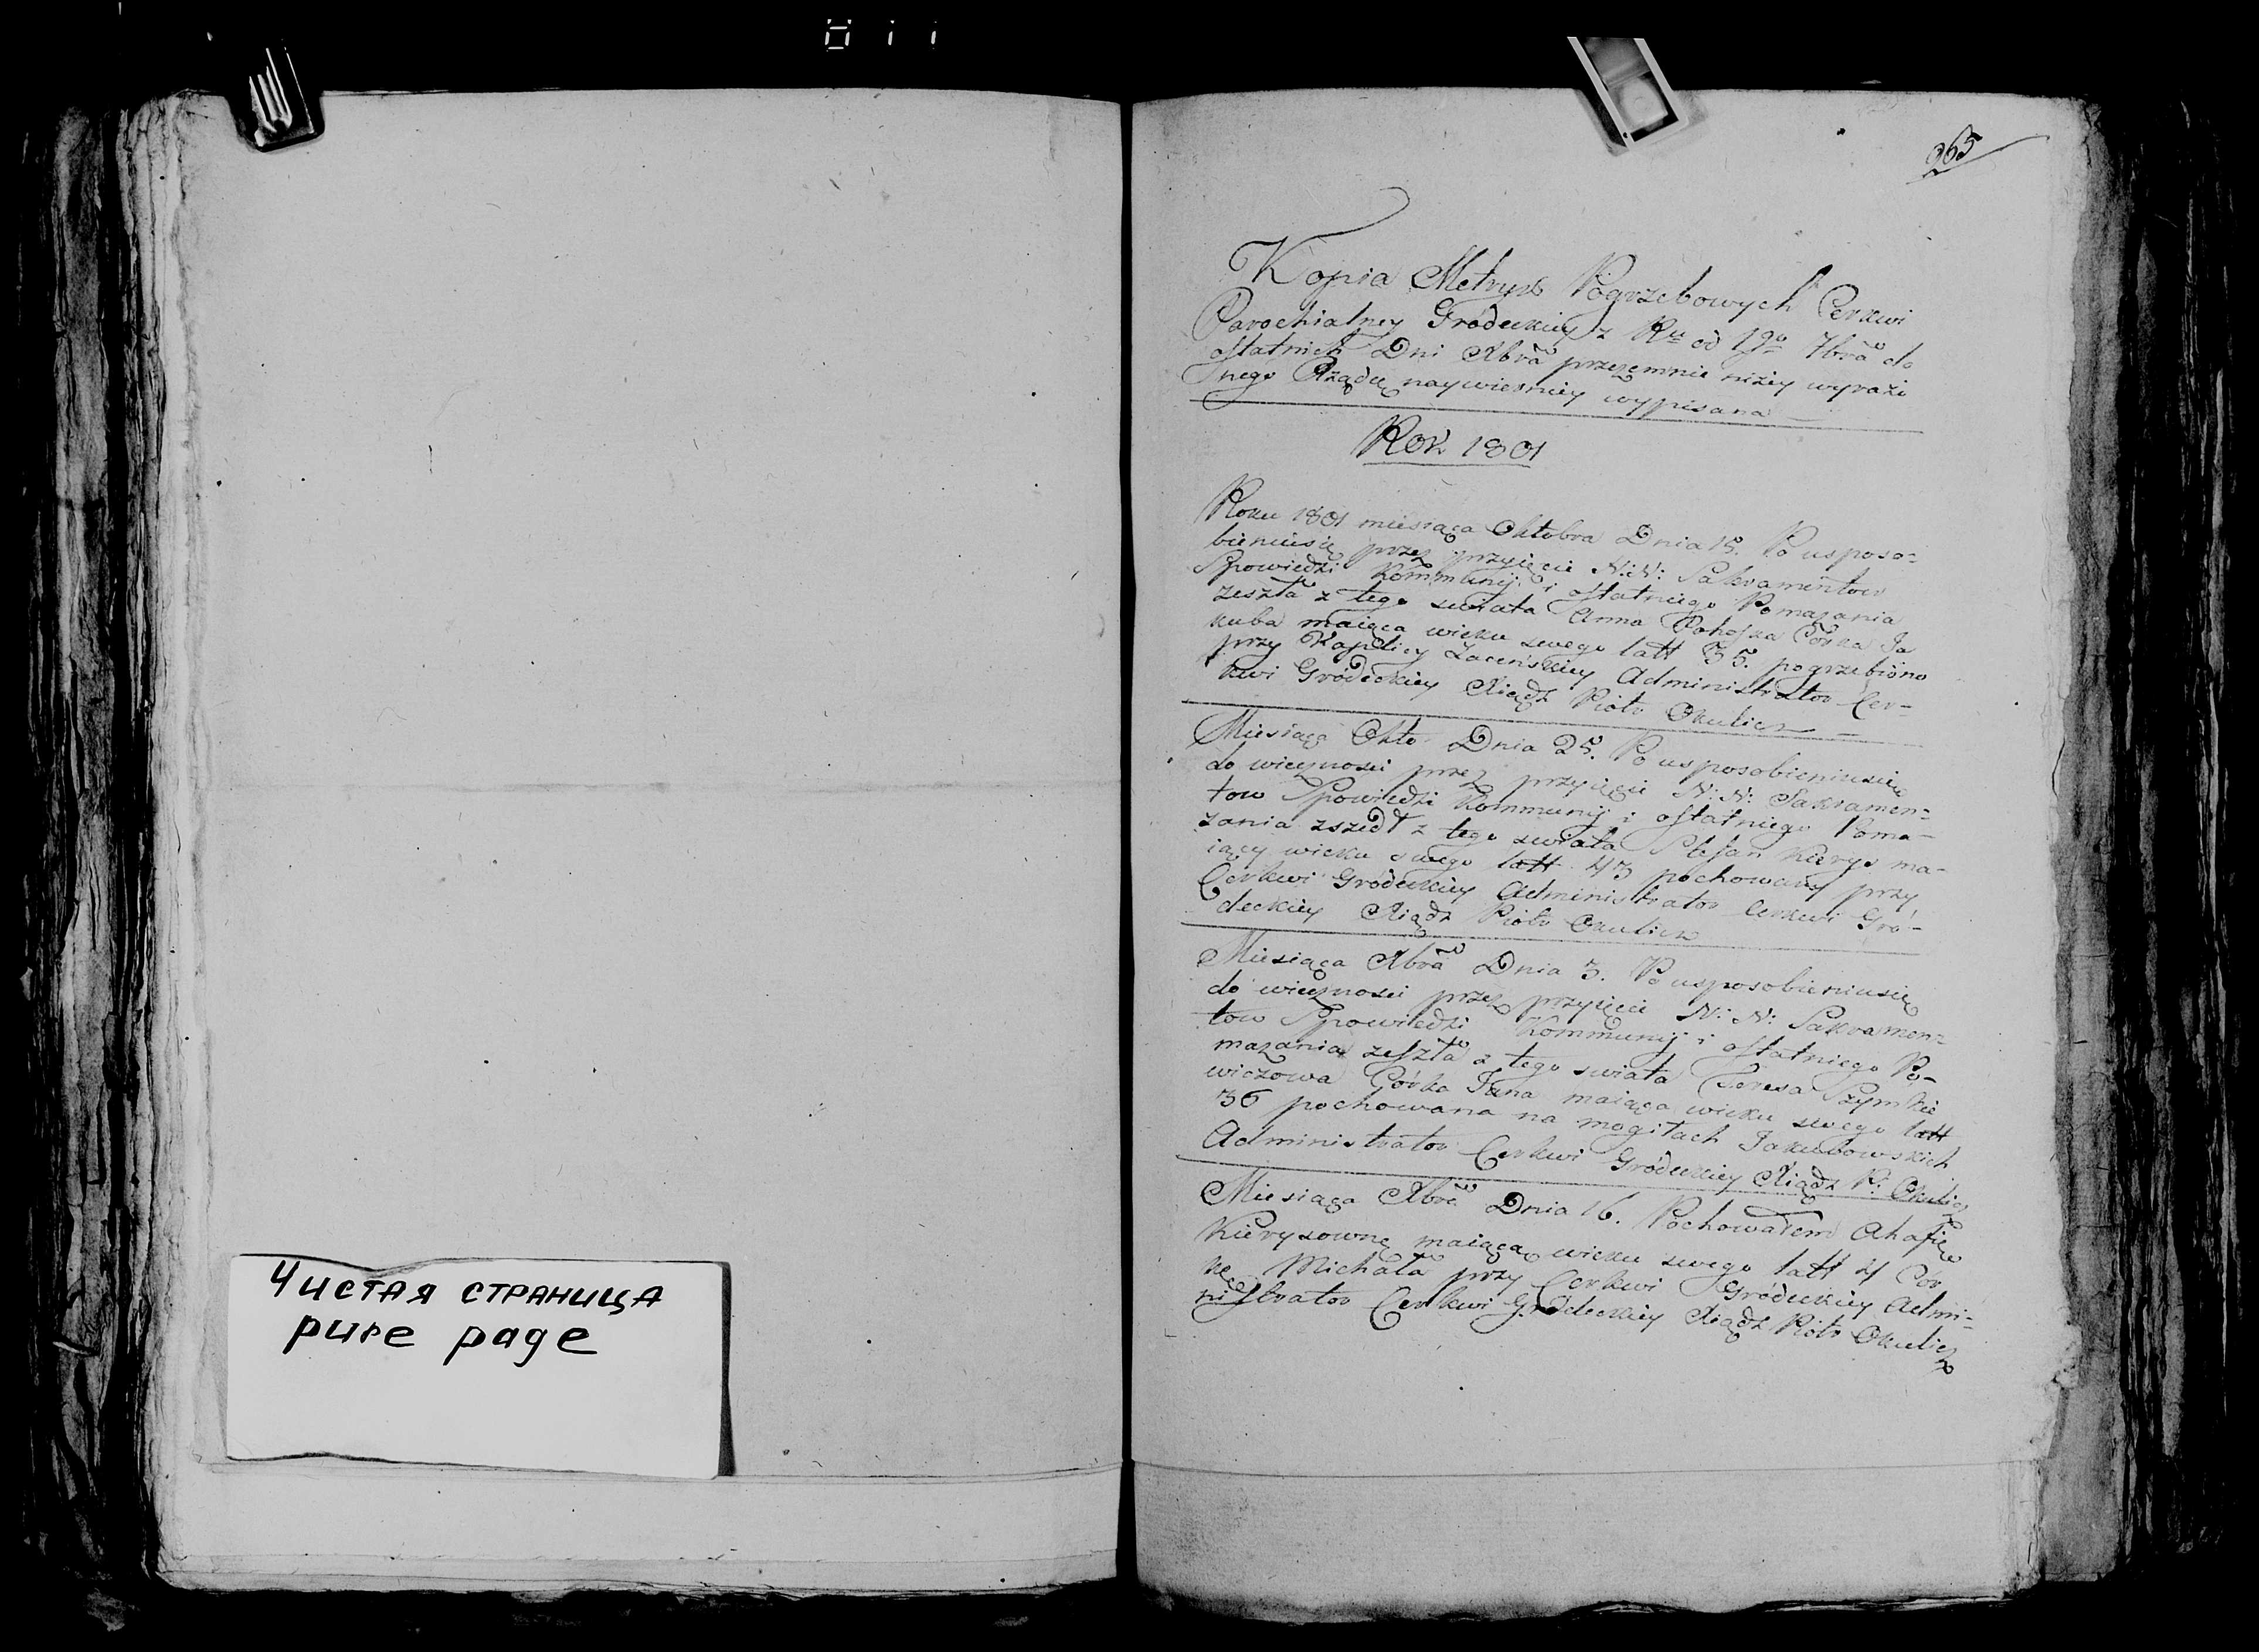 011
Чистая страница
pure page
365
Kopia Metryk Pogrzebowych Cerkwi
Parochialney Gródeckiey z Ru od 1go 7bra do
ostatnich Dni Xbra przezemnie niżey wyrażo
nego Rządcę naywierniey wypisana
Rok 1801
Roku 1801 miesiąca Oktobra Dnia 15. Po usposo=
bieniusię przez przyięcie N:N: Sakramentow
Spowiedzi Kommunij i ostatniego Pomazania
zeszła z tego swiata Anna Córka Ja
kuba maiąca wieku swego latt 35. pogrzebióno
przy Kaplicy Administrator Cer=
kwi Gródeckiey Xiądz Piotr Okulicz
Miesiąca Okto Dnia 25. Po usposobieniusię
do wieczności przez przyięcie N:N: Sakramen=
tow Spowiedzi Kommunij i ostatniego Poma=
zania zszedł z tego swiata Stefan Kierys ma=
iący wieku swego latt 43 pochowany przy
Cerkwi Gródeckiey Administrator Cerkwi Gró=
deckiey Xiądz Piotr Okulicz
Miesiąca Xbra Dnia 3. Po usposobieniusię
do wieczności przez przyięcie N:N: Sakramen=
tow Spowiedzi Kommunij i ostatniego Po=
mazania zeszła z tego swiata Teresa Szymkie
wiczowa Córka Jana maiąca wieku swego latt
36 pochowana na mogiłach Jakubowskich
Administrator Cerkwi Gródeckiey Xiądz P: Okulicz
Miesiąca Xbra Dnia 16. Pochowałem Ahafię
Kierysownę maiącą wieku swego latt 4 Cor
kę Michała przy Cerkwi Gródeckiey Admi=
nistrator Cerkwi Gródeckiey Xiądz Piotr Okulicz